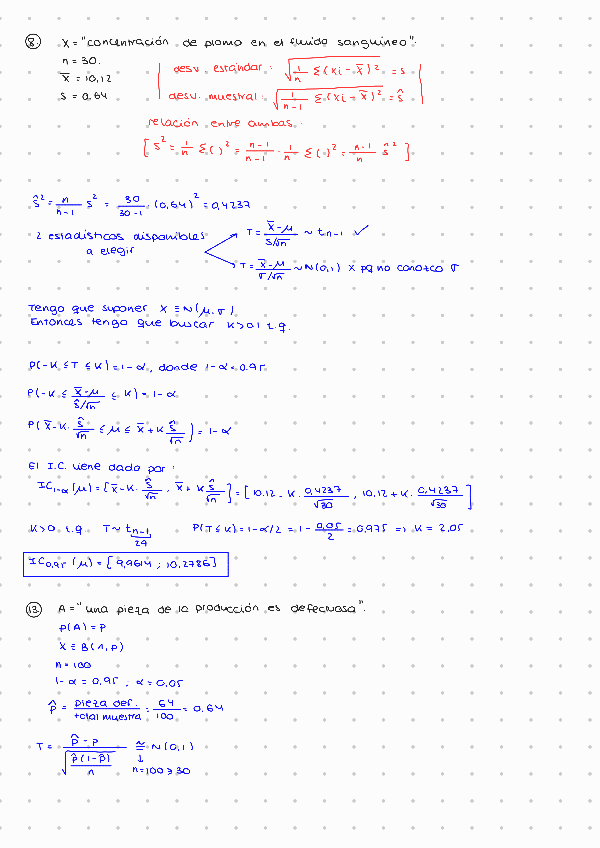 8. X = "concentración de plomo en el fluido sanguíneo".
n = 30.
x̄ = 10,12
s = 0,64
desv. estándar: √(1/n Σ(xi - x̄)²) = s
desv. muestral: √(1/(n-1) Σ(xi - x̄)²) = ŝ
relación entre ambas:
[ s² = 1/n Σ( )² = (n-1)/(n-1) · 1/n Σ( )² = (n-1)/n ŝ² ]
ŝ² = n/(n-1) s² = 30/(30-1) · (0,64)² = 0,4237
2 estadísticos disponibles
a elegir
T = (x̄ - μ)/(ŝ/√n) ~ t n-1 ✓
T = (x̄ - μ)/(σ/√n) ~ N(0,1) X pq no conozco σ
Tengo que suponer X ≡ N(μ, σ)
Entonces tengo que buscar K>0 t.q.
P(-K ≤ T ≤ K) = 1-α, donde 1-α = 0.95
P(-K ≤ (x̄ - μ)/(ŝ/√n) ≤ K) = 1-α
P(x̄ - K · ŝ/√n ≤ μ ≤ x̄ + K ŝ/√n) = 1-α
El I.C. viene dado por:
IC 1-α (μ) = [x̄ - K · ŝ/√n , x̄ + K ŝ/√n] = [10.12 - K · 0,4237/√30 , 10,12 + K · 0,4237/√30]
K>0 t.q. T ~ t n-1 29 P(T ≤ K) = 1-α/2 = 1 - 0,05/2 = 0,975 ⇒ K = 2,05
IC 0,95 (μ) = [9,9614 ; 10,2786]
13. A = "una pieza de la producción es defectuosa".
P(A) = P
X ≡ B(1,p)
n = 100
1-α = 0,95 ; α = 0,05
p̂ = pieza def./total muestra = 64/100 = 0,64
T = (p̂ - p)/√(p̂(1-p̂)/n) ≅ N(0,1)
↓
n = 100 ≥ 30